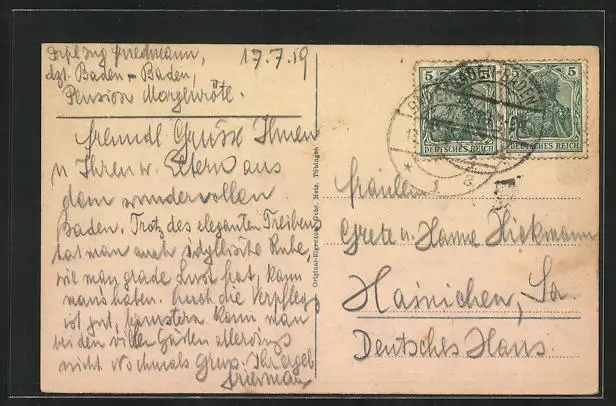 Dipl Ing Friedmann,
dzt. Baden-Baden,
Pension Morgenröte.
17.7.19
freundl Grüsse Ihnen
u Ihren w. Eltern aus
dem wundervollen
Baden. Trotz des eleganten Treibens
hat man auch idyllische Ruhe,
wie man grade Lust hat, kann
mans haben. Auch die Verpfleg
ist gut, hamstern kann man
bei den vielen Gästen allerdings
nicht Nochmals Gruss Ihr ergeb
Friedman
Original-Eigentum Gebr. Metz, Tübingen
BADEN-BADEN
5 5
DEUTSCHES REICH
5
DEUTSCHES REICH
Fräulein
Grete u. Hanne Hickmann
Hainichen, Sa.
Deutsches Haus.